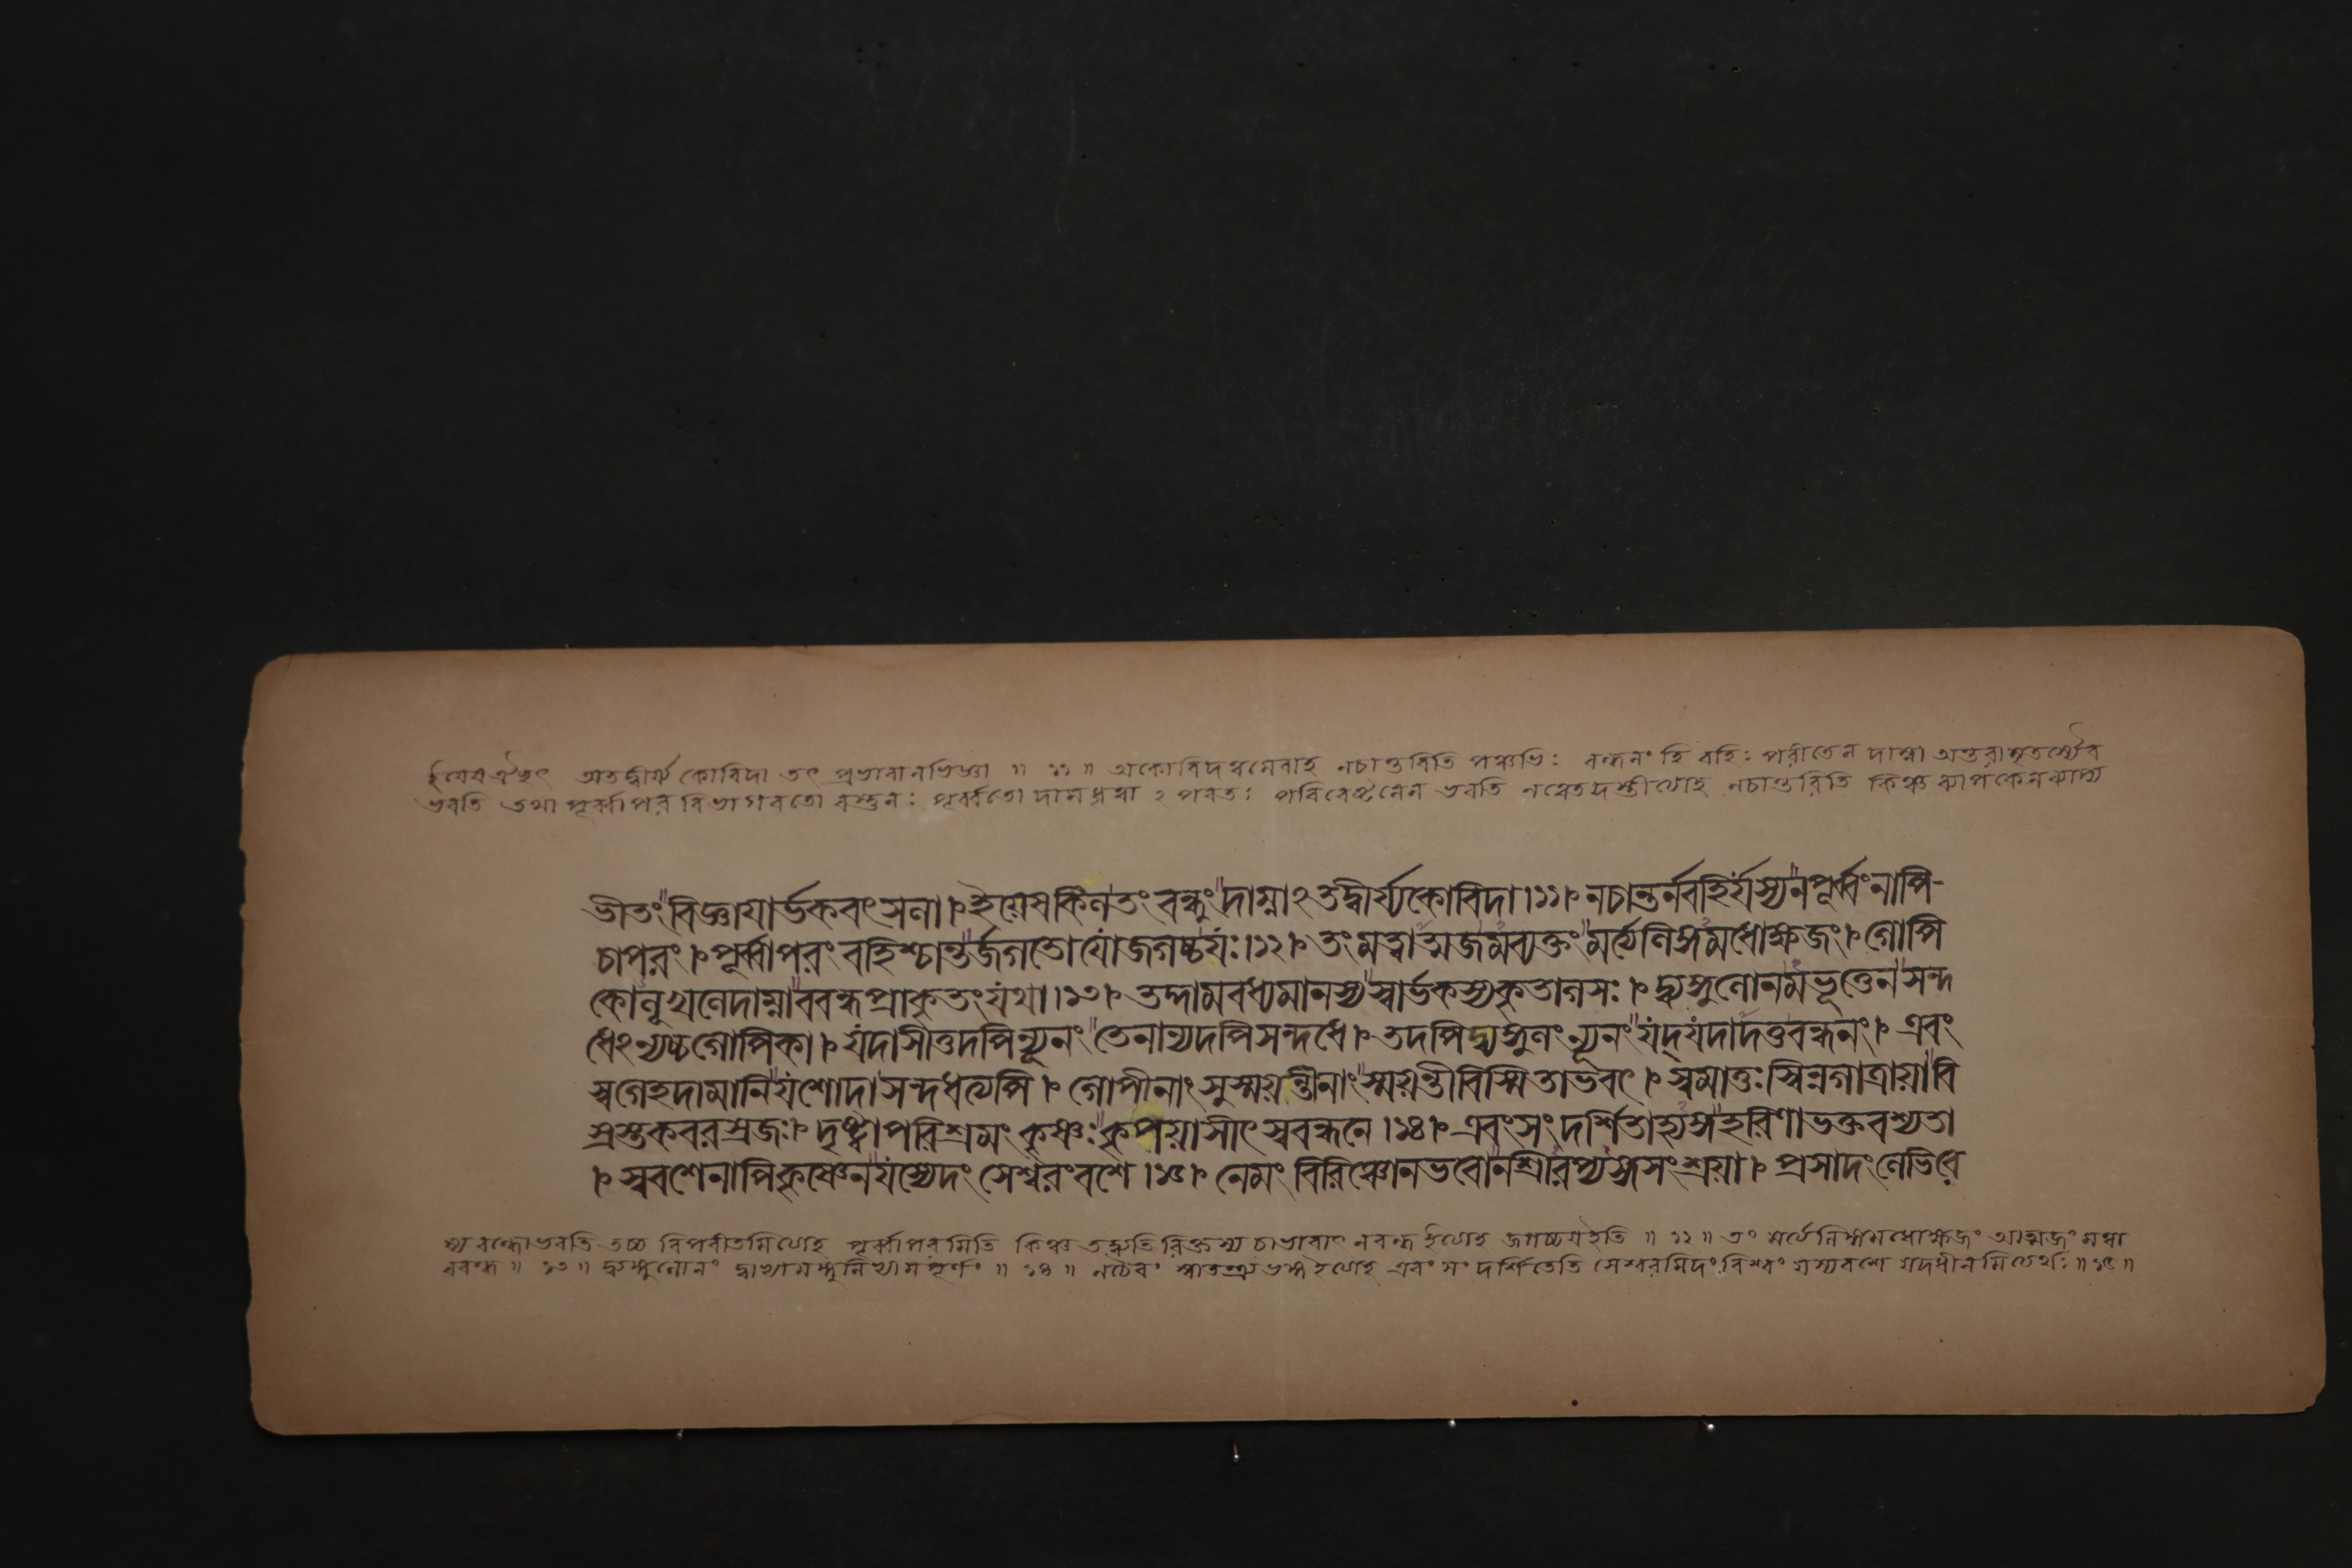 ইয়েষ ঐচ্ছৎ অতদ্বীর্য্য কোবিদা তৎ প্রভাবানভিজ্ঞা ॥ ১১ ॥ অকোবিদত্বমেবাহ নচান্তরিতি পঞ্চভিঃ বন্ধনং হি বহিঃ পরীতেন দাম্না অন্তরাবৃতস্যৈব
ভবতি তথা পূর্ব্বাপর বিভাগবতো বস্তুনঃ পূর্ব্বতো দাম ধৃত্বা ২ পরতঃ পরিবেষ্টনেন ভবতি নত্বেতদস্তীত্যাহ নচান্তরিতি কিঞ্চ ব্যাপকেন ব্যাপ্য
ভীতং বিজ্ঞায়ার্ভকবৎসলা । ইয়েষ কিল তং বন্ধুং দাম্নাঽতদ্বীর্য্যকোবিদা । ১১ । নচান্তর্নবহির্যস্য ন পূর্ব্বং নাপি-
চাপরং । পূর্ব্বাপরং বহিশ্চান্তর্জগতো যো জগচ্চযঃ । ১২ । তং মত্বাত্মজমব্যক্তং মর্ত্যলিঙ্গমধোক্ষজং । গোপি
কোলূখলে দাম্না ববন্ধ প্রাকৃতং যথা । ১৩ । তদ্দামবধ্যমানস্য স্বার্ভকস্য কৃতাগসঃ । দ্ব্যঙ্গুলোনমভূত্তেন সন্দ
ধেঽন্যচ্চ গোপিকা । যদাসীত্তদপি ন্যূনং তেনান্যদপি সন্দধে । তদপি দ্ব্যঙ্গুলং ন্যূনং যদ্যদাদত্ত বন্ধনং । এবং
স্বগেহদামানি যশোদা সন্দধত্যপি । গোপীনাং সুস্ময়ন্তীনাং স্ময়ন্তী বিস্মিতাভবৎ । স্বমাতুঃ স্বিন্নগাত্রায়া বি
স্রস্তকবরস্রজঃ । দৃষ্ট্বা পরিশ্রমং কৃষ্ণঃ কৃপয়াসীৎ স্ববন্ধনে । ১৪ । এবং সংদর্শিতাহ্যঙ্গ হরিণা ভক্তবশ্যতা
। স্ববশেনাপি কৃষ্ণেন যস্যেদং সেশ্বরং বশে । ১৫ । নেমং বিরিঞ্চো ন ভবো ন শ্রীরপ্যঙ্গসংশ্রয়া । প্রসাদং লেভিরে
স্য বন্ধো ভবতি তচ্চ বিপরীতমিত্যাহ পূর্ব্বাপরমিতি কিঞ্চ তদ্ব্যতিরিক্তস্য চাভাবাৎ নবন্ধ ইত্যাহ জগচ্চয ইতি ॥ ১২ ॥ তং মর্ত্যলিঙ্গমধোক্ষজং আত্মজং মত্বা
ববন্ধ ॥ ১৩ ॥ দ্ব্যঙ্গুলোনং দ্বাভ্যামঙ্গুলিভ্যামপূর্ণং ॥ ১৪ ॥ নচৈবং স্বাতন্ত্র্য ভঙ্গ ইত্যাহ এবং সংদর্শিতেতি সেশ্বরমিদং বিশ্বং যস্য বশে যদধীনমিত্যর্থঃ ॥ ১৫ ॥